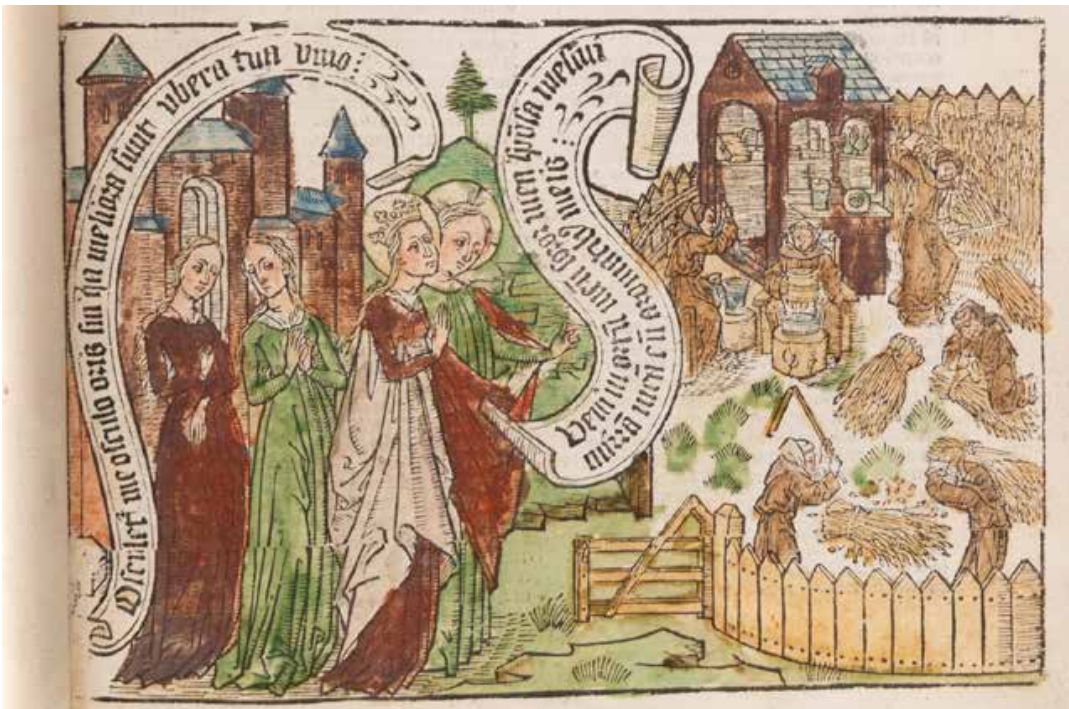 Osculet᷑ me osculo oris sui q̇a meliora sunt vbera tua vino :
Veni in ortū meū soror mea sp̄osa messui
mirrā meā cū aromatib᷒ meis :